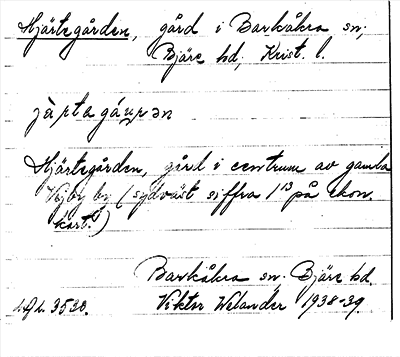 Hjärtegården, gård i Barkåkra sn,
Bjäre hd, Krist. l.
jä̀rtagáʋrən
Hjärtegården, gård i centrum av gamla
Vejby by (sydväst siffra 1¹³ på ekon.
kart.)
Barkåkra sn. Bjäre hd.
Viktor Welander 1938-39.
3520.